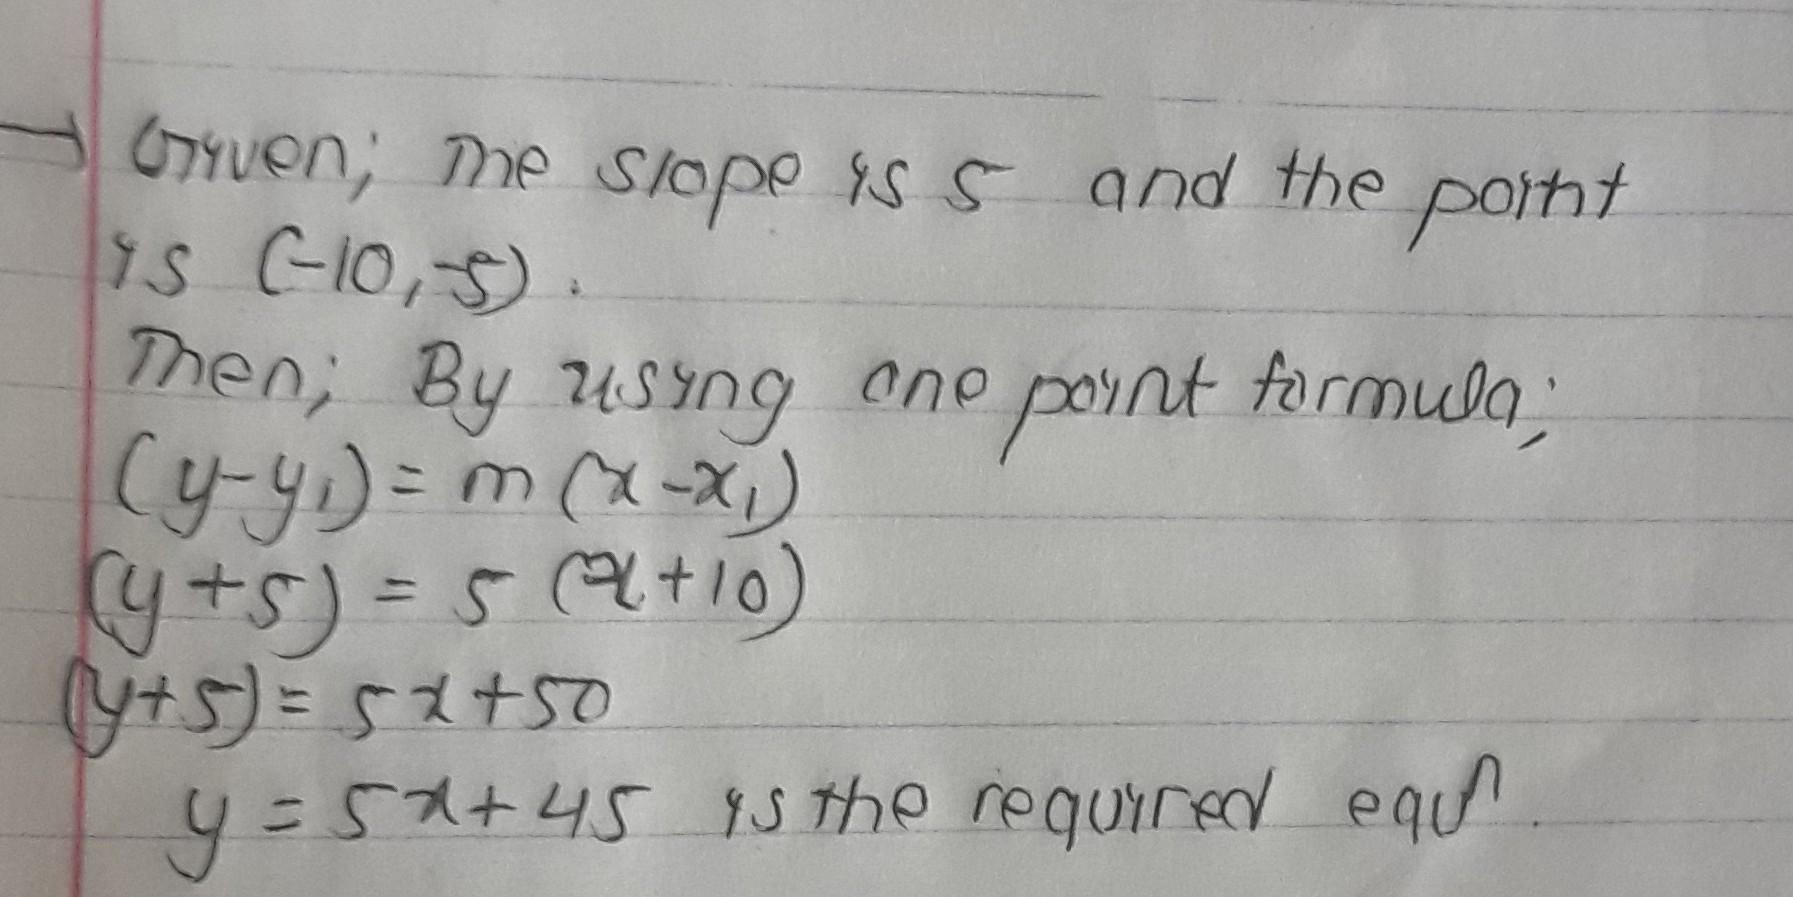 → Given; The slope is 5 and the point
is (-10,-5).
Then; By using one point formula;
(y-y₁) = m (x-x₁)
(y+5) = 5 (x+10)
(y+5) = 5x+50
y = 5x+45 is the required equⁿ.